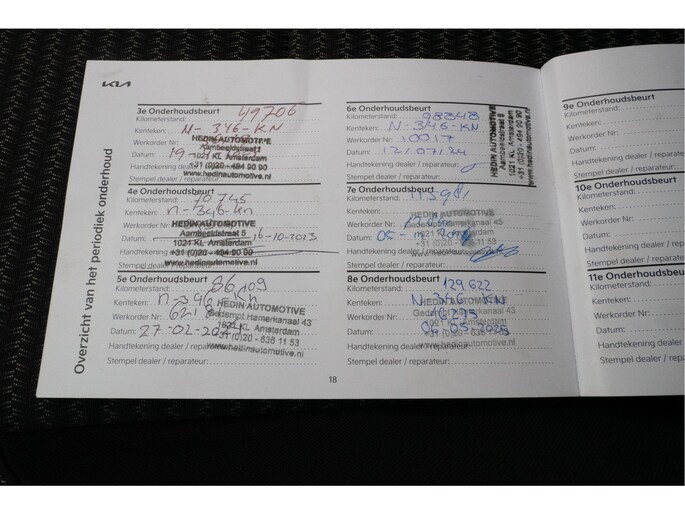 KIA
Overzicht van het periodiek onderhoud
3e Onderhoudsbeurt
Kilometerstand: 49706
Kenteken: N-346-KN
Werkorder Nr.:
Datum: 19-
Handtekening dealer / reparateur:
Stempel dealer / reparateur:
HEDIN AUTOMOTIVE
Aambeeldstraat
1021 KL Amsterdam
+31 (0)20 - 494 90 90
www.hedinautomotive.nl
4e Onderhoudsbeurt
Kilometerstand: 70745
Kenteken: n-346-kn
Werkorder Nr.:
Datum: 16-10-2023
Handtekening
Stempel dealer / reparateur:
HEDIN AUTOMOTIVE
Aambeeldstraat 5
1021 KL Amsterdam
+31 (0)20 - 494 90 90
www.hedinautomotive.nl
5e Onderhoudsbeurt
Kilometerstand: 86109
Kenteken: n-346-kn
Werkorder Nr.:
Datum: 27-02-
Handtekening dealer / reparateur:
Stempel dealer / reparateur:
HEDIN AUTOMOTIVE
Gedempt Hamerkanaal 43
1021 KL Amsterdam
+31 (0)20 - 636 11 53
www.hedinautomotive.nl
6e Onderhoudsbeurt
Kilometerstand: 98343
Kenteken: N-346-KN
Werkorder Nr.: 10017
Datum: 12/07/24
Handtekening dealer / reparateur:
Stempel dealer / reparateur:
HEDIN AUTOMOTIVE
Aambeeldstraat 5
1021 KL Amsterdam
+31 (0)20 - 494 90 90
www.hedinautomotive.nl
7e Onderhoudsbeurt
Kilometerstand: 113981
Kenteken:
Werkorder Nr.:
Datum: 05-
Handtekening dealer / reparateur:
Stempel dealer / reparateur:
HEDIN AUTOMOTIVE
Gedempt Hamerkanaal 43
1021 KL Amsterdam
+31 (0)20 - 636 11 53
www.hedinautomotive.nl
8e Onderhoudsbeurt
Kilometerstand: 129622
Kenteken: N-346-KN
Werkorder Nr.:
Datum: 09-05-2025
Handtekening dealer / reparateur:
Stempel dealer / reparateur:
HEDIN AUTOMOTIVE
Gedempt Hamerkanaal 43
1021 KL Amsterdam
+31 (0)20 - 636 11 53
www.hedinautomotive.nl
18
9e Onderhoudsbeurt
Kilometerstand:
Kenteken:
Werkorder Nr.:
Datum:
Handtekening
Stempel dealer
10e Onderhoudsbeurt
Kilometerstand:
Kenteken:
Werkorder Nr.:
Datum:
Handtekening
Stempel dealer
11e Onderhoudsbeurt
Kilometerstand:
Kenteken:
Werkorder Nr.:
Datum:
Handtekening
Stempel dealer /